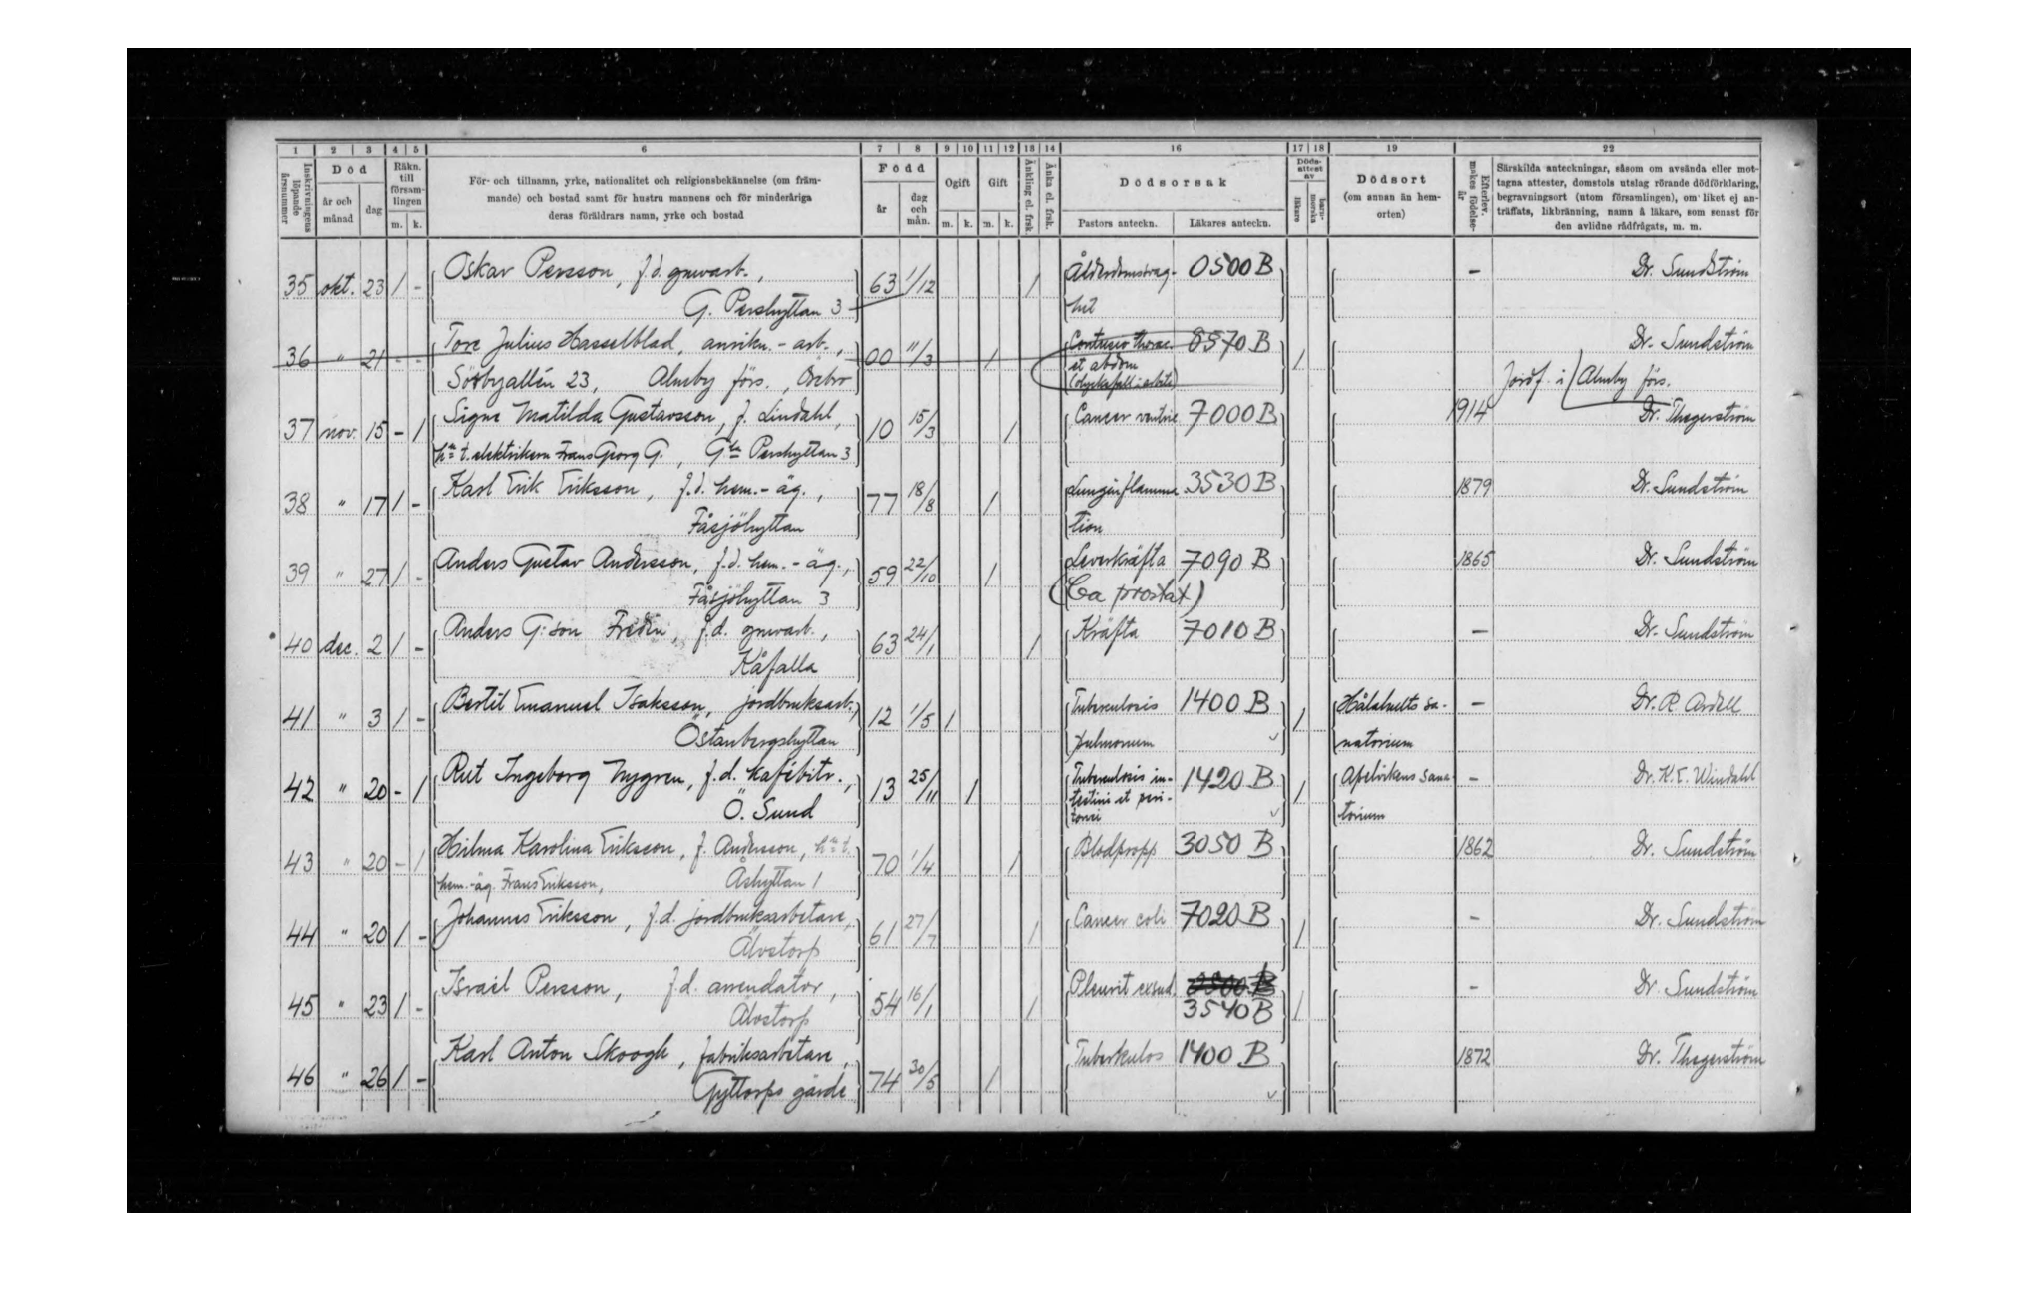 1 2 3 4 5 6 7 8 9 10 11 12 13 14 16 17 18 19 22
Inskrivningens löpande årsnummer
Död
år och månad
dag
Räkn. till försam-lingen
m. k.
För- och tillnamn, yrke, nationalitet och religionsbekännelse (om främ-
mande) och bostad samt för hustru mannens och för minderåriga
deras föräldrars namn, yrke och bostad
Född
år
dag och mån.
Ogift
m. k.
Gift
m. k.
Änkling el. frsk.
Änka el. frsk.
Dödsorsak
Pastors anteckn. Läkares anteckn.
Döds-attest av
läkare
barn-morska
Dödsort
(om annan än hem-
orten)
Efterlev. makes födelse-år
Särskilda anteckningar, såsom om avsända eller mot-
tagna attester, domstols utslag rörande dödförklaring,
begravningsort (utom församlingen), om liket ej an-
träffats, likbränning, namn å läkare, som senast för
den avlidne rådfrågats, m. m.
35 okt. 23 / - Oskar Persson, f.d. gruvarb., 63 1/12 / Ålderdomssvag- 0500 B - Dr. Sundström
G. Pershyttan 3 het
36 " 21 - - Tore Julius Hasselblad, anrikn.-arb., 00 11/3 / Contusio thorac. 8570 B / Dr. Sundström
Sörbyallén 23, Almby förs., Örebro et abdom Jordf. i Almby förs.
(olycksfall i arbete)
37 nov. 15 - / Signe Matilda Gustavsson, f. Lindahl, 10 15/3 / Cancer ventric 7000 B 1914 Dr. Thegerström
h=n t. elektrikern Frans Georg G., G=la Pershyttan 3
38 " 17 / - Karl Erik Eriksson, f.d. hem.-äg., 77 18/8 / Lunginflamma 3530 B 1879 Dr. Sundström
Fåsjöhyttan tion
39 " 27 / - Anders Gustav Andersson, f.d. hem.-äg., 59 22/10 / Leverkräfta 7090 B 1865 Dr. Sundström
Fåsjöhyttan 3 (Ca prostat)
40 dec. 2 / - Anders G:son Fredin, f.d. gruvarb., 63 24/1 / Kräfta 7010 B - Dr. Sundström
Kåfalla
41 " 3 / - Bertil Emanuel Isaksson, jordbruksarb., 12 1/5 / Tuberculosis 1400 B / Hålahults sa- - Dr. R. Ardell
Östanbergshyttan pulmonum natorium
42 " 20 - / Rut Ingeborg Nygren, f.d. kafébitr., 13 25/11 / Tuberculosis in- 1420 B / Apelvikens sana- - Dr. K.E. Windahl
Ö. Sund testini et peri- torium
tonei
43 " 20 - / Hilma Karolina Eriksson, f. Andersson, h=n t. 70 1/4 / Blodpropp 3050 B 1862 Dr. Sundström
hem.-äg. Frans Eriksson, Åshyttan 1
44 " 20 / - Johannes Eriksson, f.d. jordbruksarbetare, 61 27/7 / Cancer coli 7020 B / - Dr. Sundström
Älvstorp
45 " 23 / - Israel Persson, f.d. arrendator, 54 16/1 / Pleurit exsud. / - Dr. Sundström
Älvstorp 3540 B
46 " 26 / - Karl Anton Skoogh, fabriksarbetare, 74 30/5 / Tuberkulos 1400 B 1872 Dr. Thegerström
Gyttorps gärde